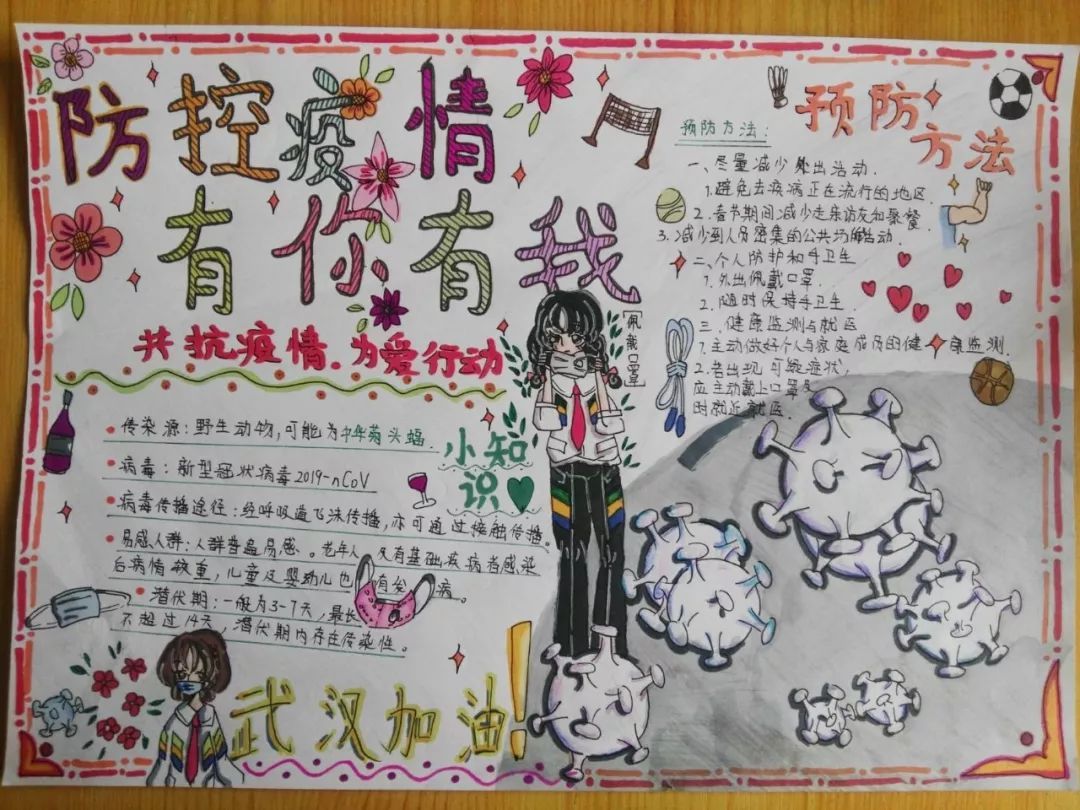 防控疫情
有你有我
共抗疫情.为爱行动
小知
识
• 传染源:野生动物,可能为中华菊头蝠
• 病毒:新型冠状病毒2019-nCoV
• 病毒传播途径:经呼吸道飞沫传播,亦可通过接触传播。
• 易感人群:人群普遍易感。老年人 及有基础疾病者感染
后病情较重,儿童及婴幼儿也 有 病。
• 潜伏期:一般为3-7天,最长
不超过14天,潜伏期内存在传染性。
武汉加油!
[佩戴口罩]
预防
方法
预防方法:
一、尽量减少外出活动.
1.避免去疾病正在流行的地区.
2.春节期间减少走亲访友和聚餐.
3.减少到人员密集的公共场所活动.
二、个人防护和手卫生
1.外出佩戴口罩.
2.随时保持手卫生
三.健康监测与就医
1.主动做好个人与家庭成员的健 康监测.
2.若出现可疑症状,
应主动戴上口罩及
时就近就医.